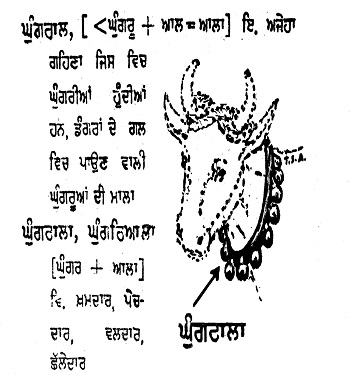 ਘੁੰਗਰਾਲ, [<ਘੁੰਗਰੂ + ਆਲ=ਆਲਾ] ਇ. ਅਜੇਹਾ
ਗਹਿਣਾ ਜਿਸ ਵਿਚ
ਘੁੰਗਰੀਆਂ ਹੁੰਦੀਆਂ
ਹਨ, ਡੰਗਰਾਂ ਦੇ ਗਲ
ਵਿਚ ਪਾਉਣ ਵਾਲੀ
ਘੁੰਗਰੂਆਂ ਦੀ ਮਾਲਾ
ਘੁੰਗਰਾਲਾ, ਘੁੰਗਰਿਆਲਾ
[ਘੁੰਗਰ + ਆਲਾ]
ਵਿ. ਖ਼ਮਦਾਰ, ਪੇਚ-
ਦਾਰ, ਵਲਦਾਰ,
ਛੱਲੇਦਾਰ
ਘੁੰਗਰਾਲਾ